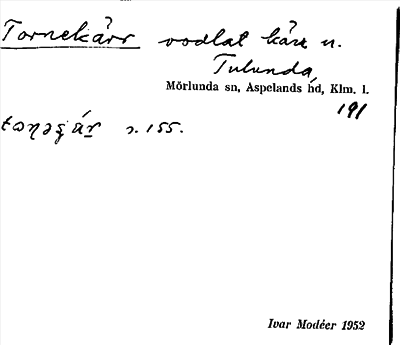 Tornekärr vodlat kärr u.
Tulunda,
Mörlunda sn, Aspelands hd, Klm. l.
191
s. 155.
Ivar Modéer 1952